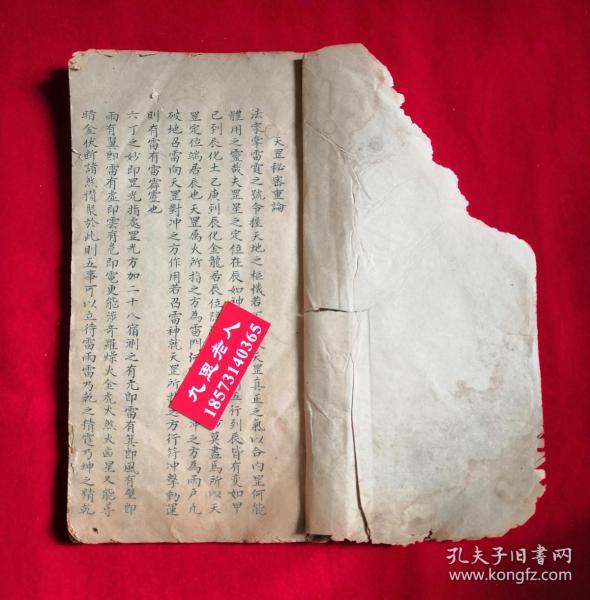 天罡秘密重論
法家掌雷霆之號令握天地之樞機若
天罡真正之氣以合內罡何能
體用之靈哉夫罡星之定位在辰如神
五行到辰皆有変如甲
己到辰化土乙庚到辰化金龍居辰位
莫盡爲所以天
罡定位端居辰也天罡属火所指之方為雷門
冲之方為雨戶凡
破地召雷向天罡對冲之方作用若召雷神就天罡所
之方行符冲擊動運
則有雷有雷霹靂也
六丁之妙即罡光指處罡光方加二十八宿
之有
即雷有箕即風有壁即
雨有翼即雷有虛即雲有危即電更能涉奇羅燥火金虎火然火
星又能尋
暗金伏断請然
聚於此則五事可以立待雷雨雷乃乾之精霆乃坤之精乾
九思老人
18573140365
孔夫子旧書网
www.kongfz.com